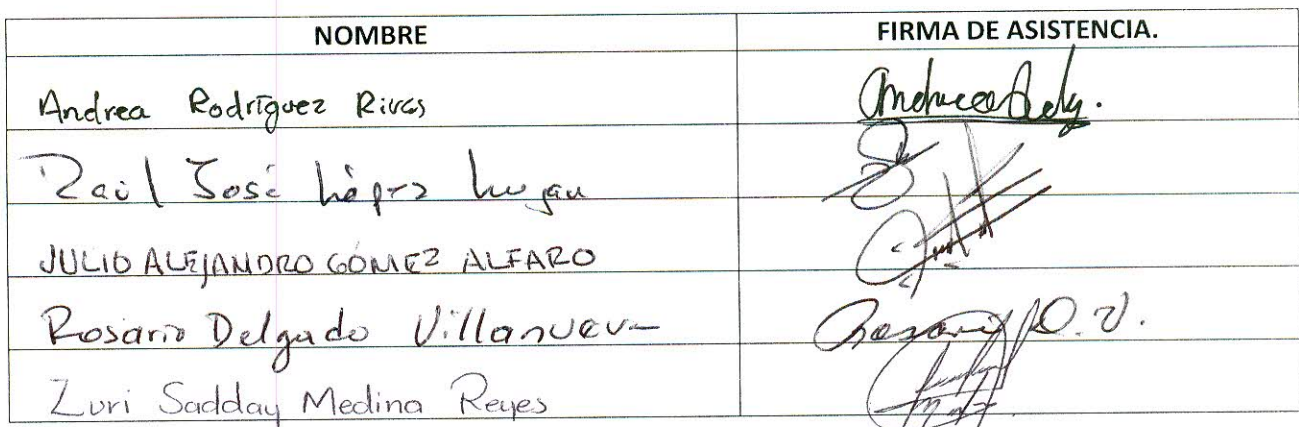 NOMBRE FIRMA DE ASISTENCIA.
Andrea Rodríguez Rivas
Raúl José López Lujan
JULIO ALEJANDRO GÓMEZ ALFARO
Rosario Delgado Villanueva Rosario D. V.
Zuri Sadday Medina Reyes